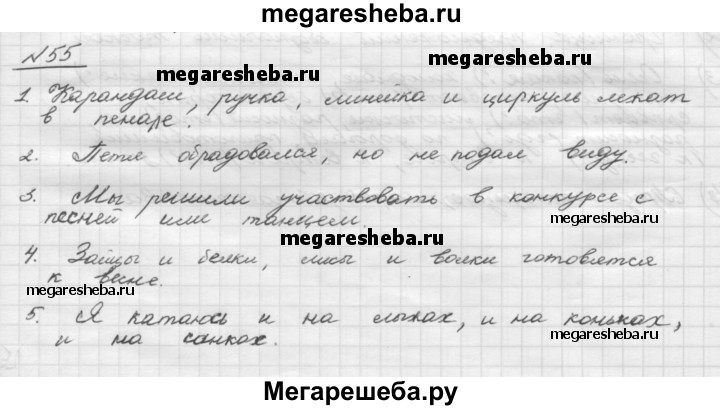 megaresheba.ru
№55
megaresheba.ru
megaresheba.ru
1. Карандаш, ручка, линейка и циркуль лежат
в пенаре.
2. Петя обрадовался, но не подал виду.
3. Мы решили участвовать в конкурсе с
песней или танцем
megaresheba.ru
megaresheba.ru
4. Зайцы и белки, лисы и волки готовятся
к зиме.
megaresheba.ru
5. Я катаюсь и на лыжах, и на коньках,
и на санках.
megaresheba.ru
Мегарешеба.ру